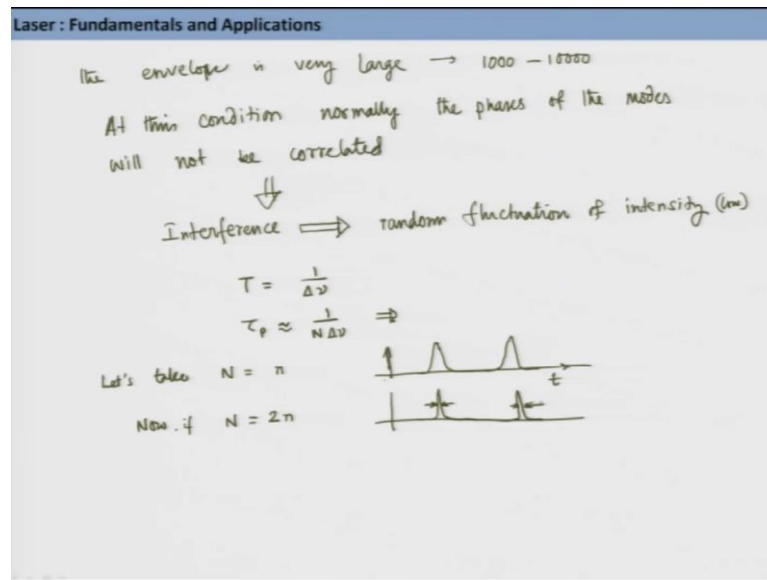 Laser : Fundamentals and Applications
The envelope is very large → 1000 – 10000
At this condition normally the phases of the modes
will not be correlated
⇓
Interference ⟹ random fluctuation of intensity (low)
T = 1/Δν
τp ≈ 1/NΔν ⇒
Let's take N = n
t
Now if N = 2n